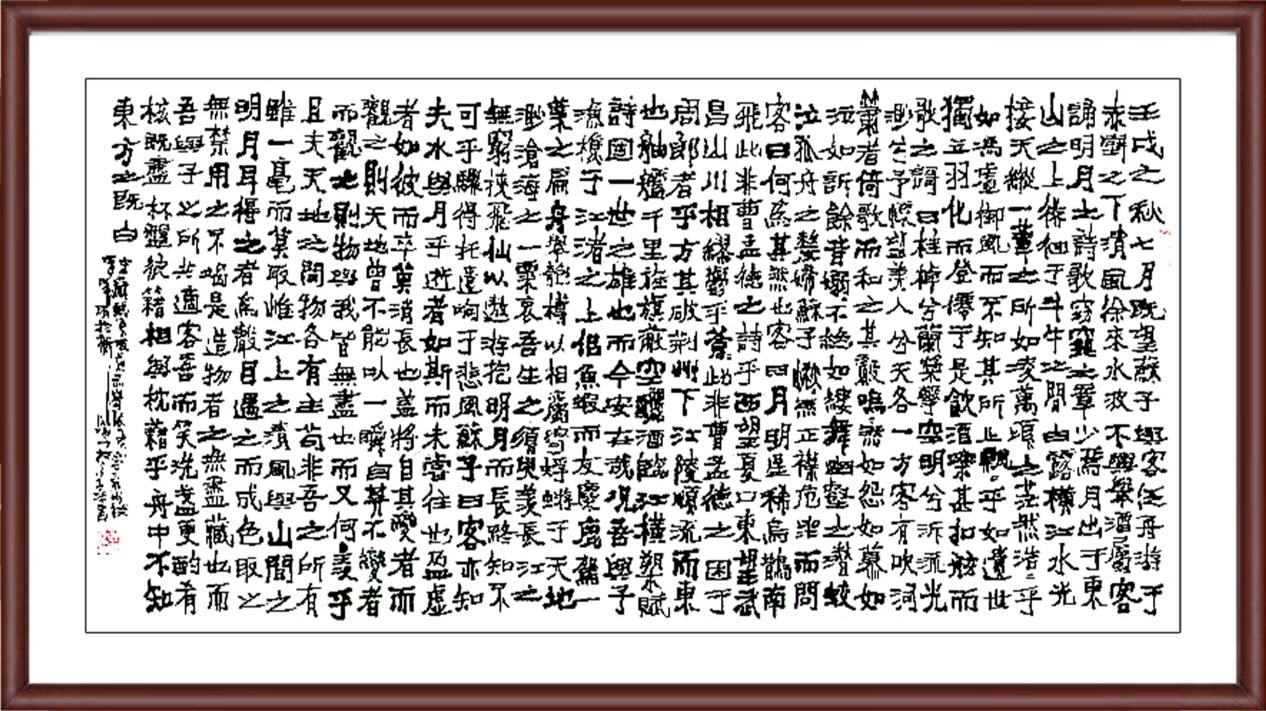 壬戌之秋七月既望蘇子與客泛舟游于
赤壁之下清風徐來水波不興舉酒屬客
誦明月之詩歌窈窕之章少焉月出于東
山之上徘徊于斗牛之間白露橫江水光
接天縱一葦之所如凌萬頃之茫然浩=乎
如馮虛御風而不知其所止飄乎如遺世
獨立羽化而登僊于是飲酒樂甚扣舷而
歌之謌曰桂棹兮蘭槳擊空明兮泝流光
渺兮予懷望美人兮天各一方客有吹洞
簫者倚歌而和之其聲嗚然如怨如慕如
泣如訴餘音嫋不絕如縷舞幽壑之潛蛟
泣孤舟之嫠婦蘇子愀然正襟危坐而問
客曰何為其然也客曰月明星稀烏鵲南
飛此非曹孟德之詩乎西望夏口東望武
昌山川相繆鬱乎蒼此非曹孟德之困于
周郎者乎方其破荊州下江陵順流而東
也舳艫千里旌旗蔽空釃酒臨江橫槊賦
詩固一世之雄也而今安在哉況吾與子
漁樵于江渚之上侶魚蝦而友麋鹿駕一
葉之扁舟舉匏樽以相屬寄蜉蝣于天地
渺滄海之一粟哀吾生之須臾羨長江之
無窮挾飛仙以遨游抱明月而長路知不
可乎驟得托遺響于悲風蘇子曰客亦知
夫水與月乎逝者如斯而未嘗往也盈虛
者如彼而卒莫消長也蓋將自其變者而
觀之則天地曾不能以一瞬自其不變者
而觀地則物與我皆無盡也而又何羨乎
且夫天地之間物各有主苟非吾之所有
雖一毫而莫取惟江上之清風與山間之
明月耳得之者為聲目遇之而成色取之
無禁用之不竭是造物者之無盡藏也而
吾與子之所共適客喜而笑洗盞更酌肴
核既盡杯盤狼籍相與枕藉乎舟中不知
東方之既白